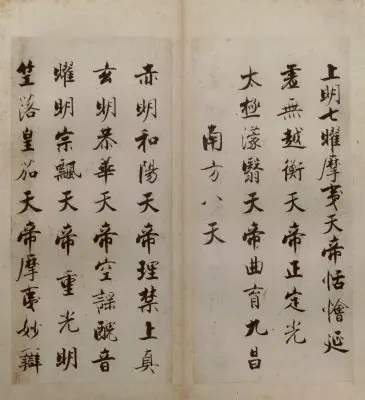 上明七曜摩夷天帝恬憺延
虛無越衡天帝正定光
太極濛翳天帝曲育九昌
南方八天
赤明和陽天帝理禁上真
玄明恭華天帝空謠醜音
曜明宗飄天帝重光明
竺落皇茄天帝摩夷妙辯